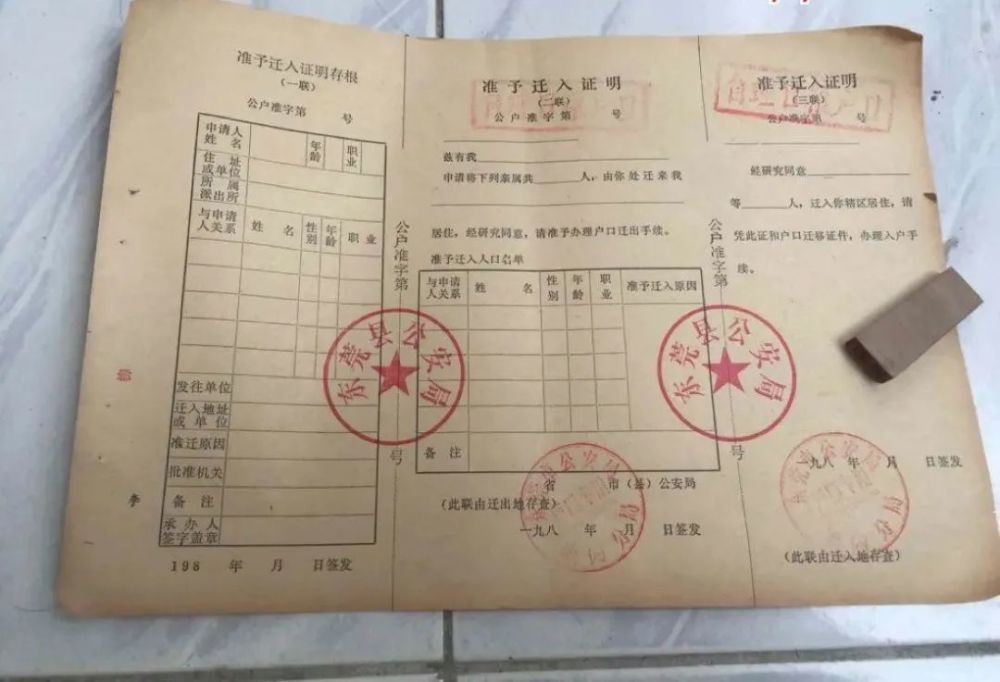 准予迁入证明存根
(一联)
公户准字第 号
申请人姓名 年龄 职业
住址或单位
所属派出所
与申请人关系 姓名 性别 年龄 职业
发往单位
迁入地址或单位
准迁原因
批准机关
备注
承办人签字盖章
198 年 月 日签发
李
公户准字第 号
东莞县公安局
准予迁入证明
(二联)
公户准字第 号
兹有我
申请将下列亲属共 人,由你处迁来我
居住,经研究同意,请准予办理户口迁出手续。
准予迁入人口名单
与申请人关系 姓名 性别 年龄 职业 准予迁入原因
备注
省 市(县)公安局
(此联由迁出地存查)
一九八 年 月 日签发
东莞市公安局
分局
公户准字第 号
东莞县公安局
自理口粮户口
准予迁入证明
(三联)
公户准字第 号
经研究同意
等 人,迁入你辖区居住,请
凭此证和户口迁移证件,办理入户手
续。
一九八 年 月 日签发
东莞市公安局
分局
(此联由迁入地存查)